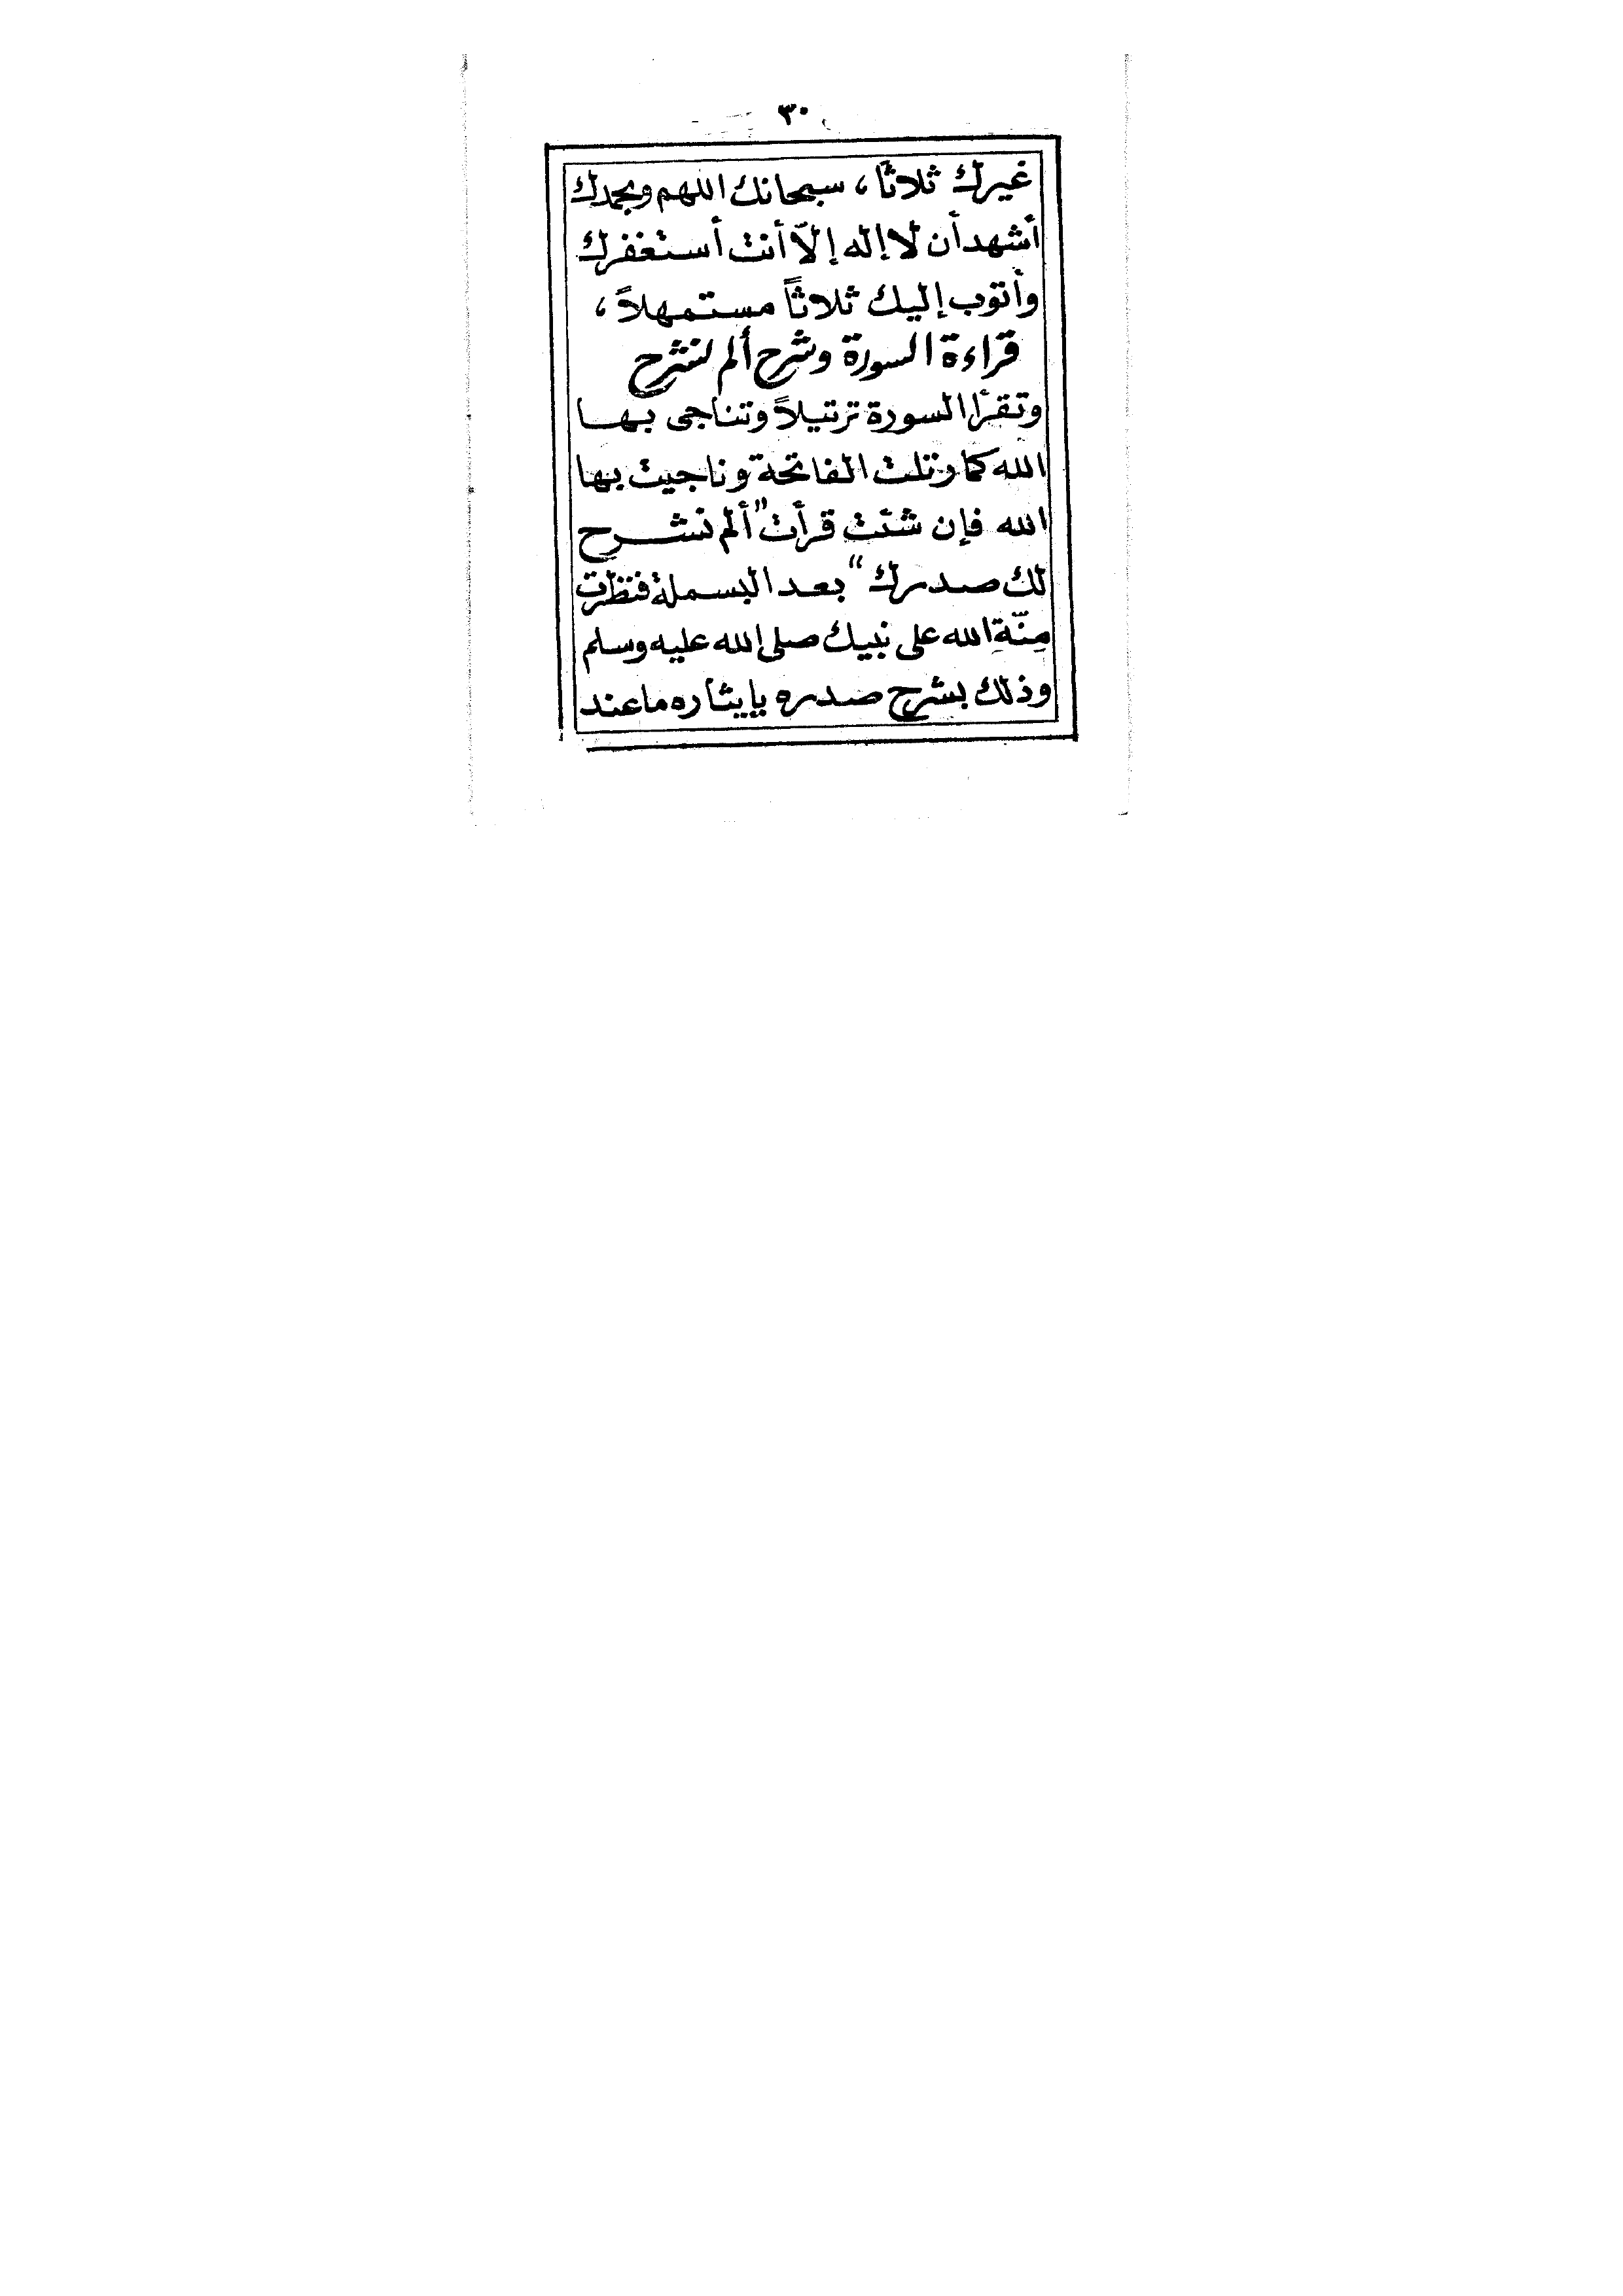 ٣٠
غيرك ثلاثاً، سبحانك اللهم وبحمدك
أشهد أن لا إله إلّا أنت أستغفرك
وأتوب إليك ثلاثاً مستمهلاً،
قراءة السورة وشرح ألم نشرح
وتقرأ السورة ترتيلاً وتناجى بها
الله كما رتلت الفاتحة وناجيت بها
الله فإن شئت قرأت "ألم نشرح
لك صدرك" بعد البسملة فنظرت
مِنّةِ الله على نبيك صلى الله عليه وسلم
وذلك بشرح صدره بإيثاره ما عند